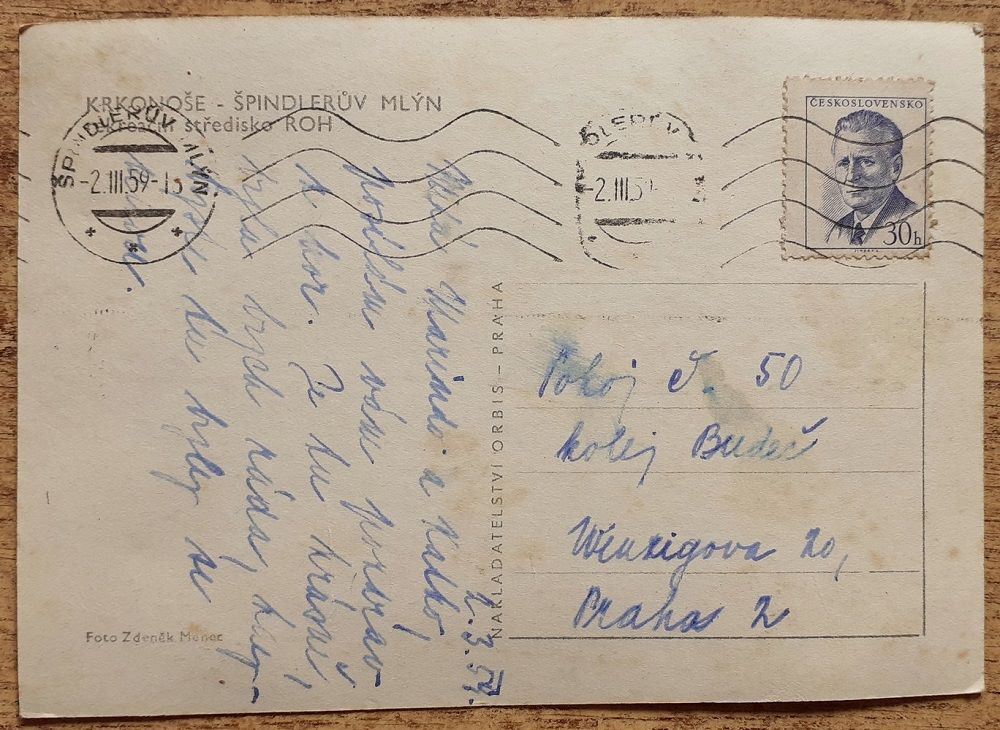 KRKONOŠE - ŠPINDLERŮV MLÝN
rekreační středisko ROH
ŠPINDLERŮV MLÝN
-2.III.59-15
DLERŮV
-2.III.5
ČESKOSLOVENSKO
30h
2. 3. 59.
Milá Marindo a Naďko,
posílám vám pozdrav
z hor. Je tu krásně,
byla bych ráda, kdy-
byste tu byly se
mnou.
NAKLADATELSTVÍ ORBIS – PRAHA
Pokoj č. 50
kolej Budeč
Wenzigova 20,
Praha 2
Foto Zdeněk Menec